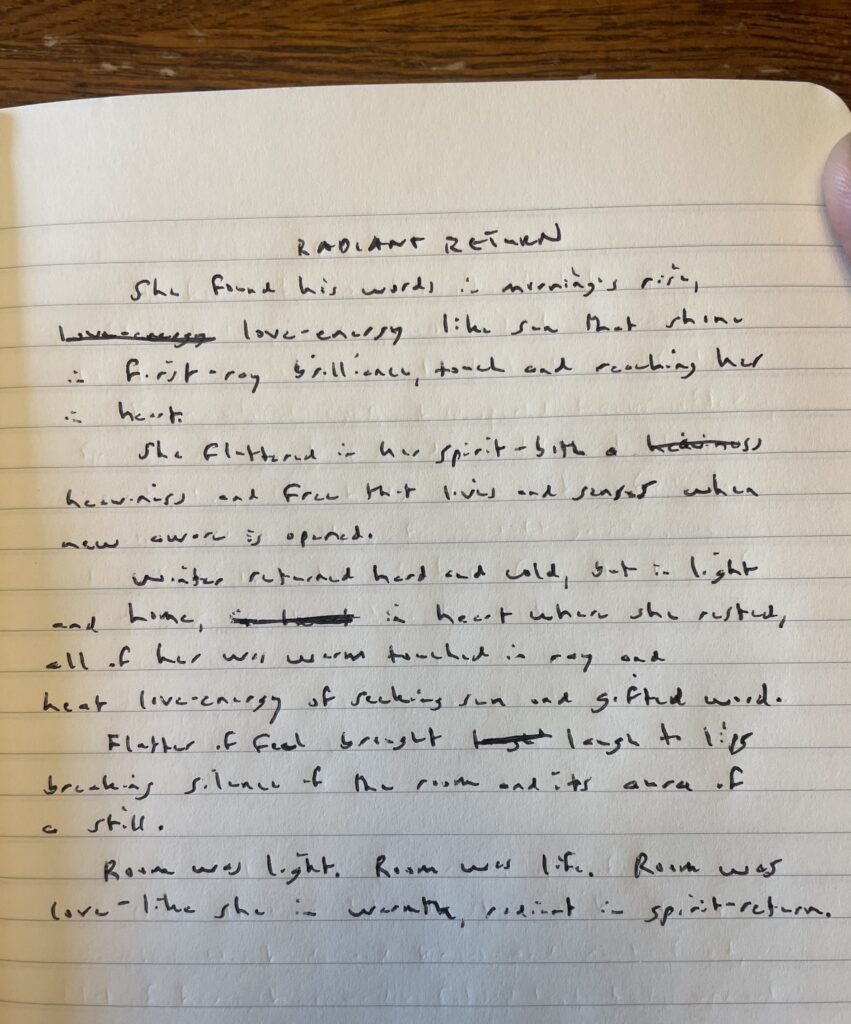 RADIANT RETURN
She found his words in morning's rise,
love-energy love-energy like sun that shine
in first-ray brilliance, touch and reaching her
in heart.
She fluttered in her spirit-both a heaviness
heaviness and free that lives and senses when
new aware is opened.
Winter returned hard and cold, but in light
and home, in heart where she rested,
all of her was warm touched in ray and
heat love-energy of seeking sun and gifted word.
Flutter of feel brought laugh to lips
breaking silence of the room and its aura of
a still.
Room was light. Room was life. Room was
love-like she in warmth, radiant in spirit-return.